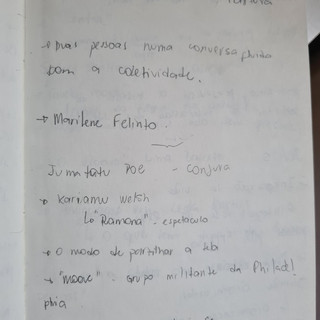 + mais pessoas numa conversa fluida
com a coletividade.
→ Marilene Felinto
Jumatatu Poe - conjura
→ Kariamu Welsh
↳ "Ramona" - espetáculo
→ O modo de partilhar a
→ "Moove" - grupo militante da Philadel
phia